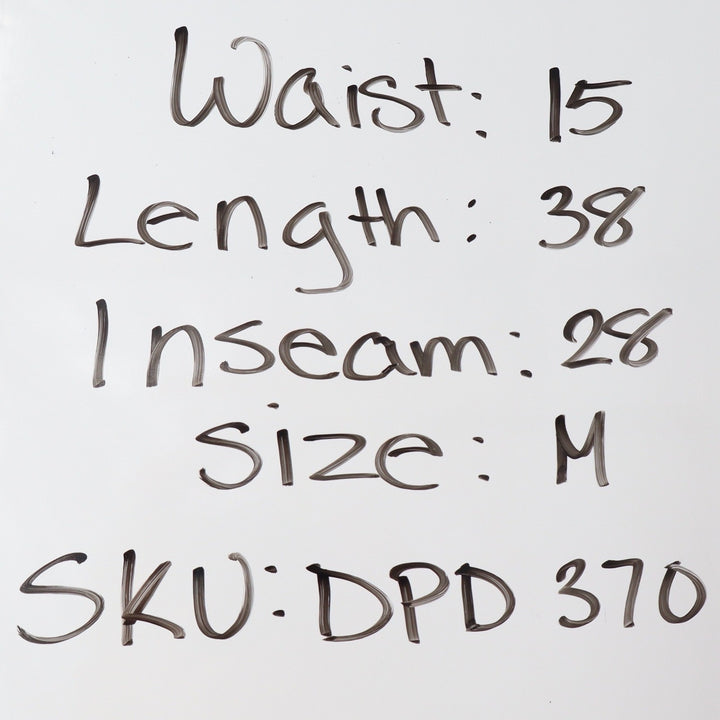 Waist: 15
Length: 38
Inseam: 28
Size: M
SKU: DPD 370